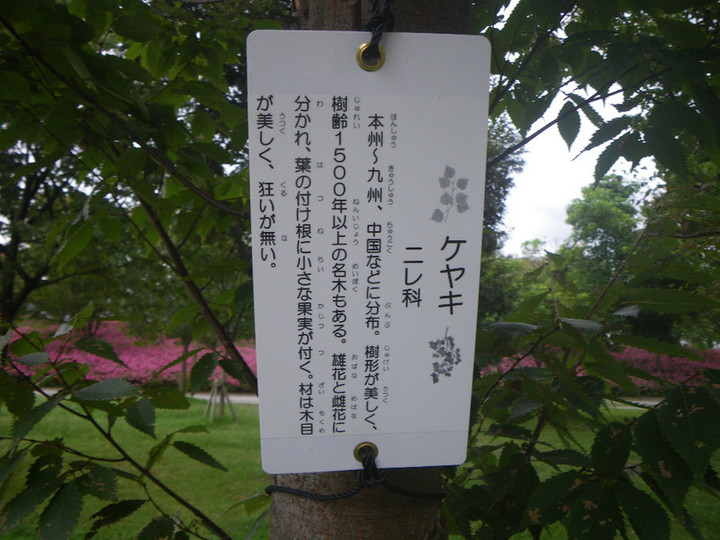 ケヤキ
ニレ科
本州～九州、中国などに分布。樹形が美しく、
樹齢１５００年以上の名木もある。雄花と雌花に
分かれ、葉の付け根に小さな果実が付く。材は木目
が美しく、狂いが無い。